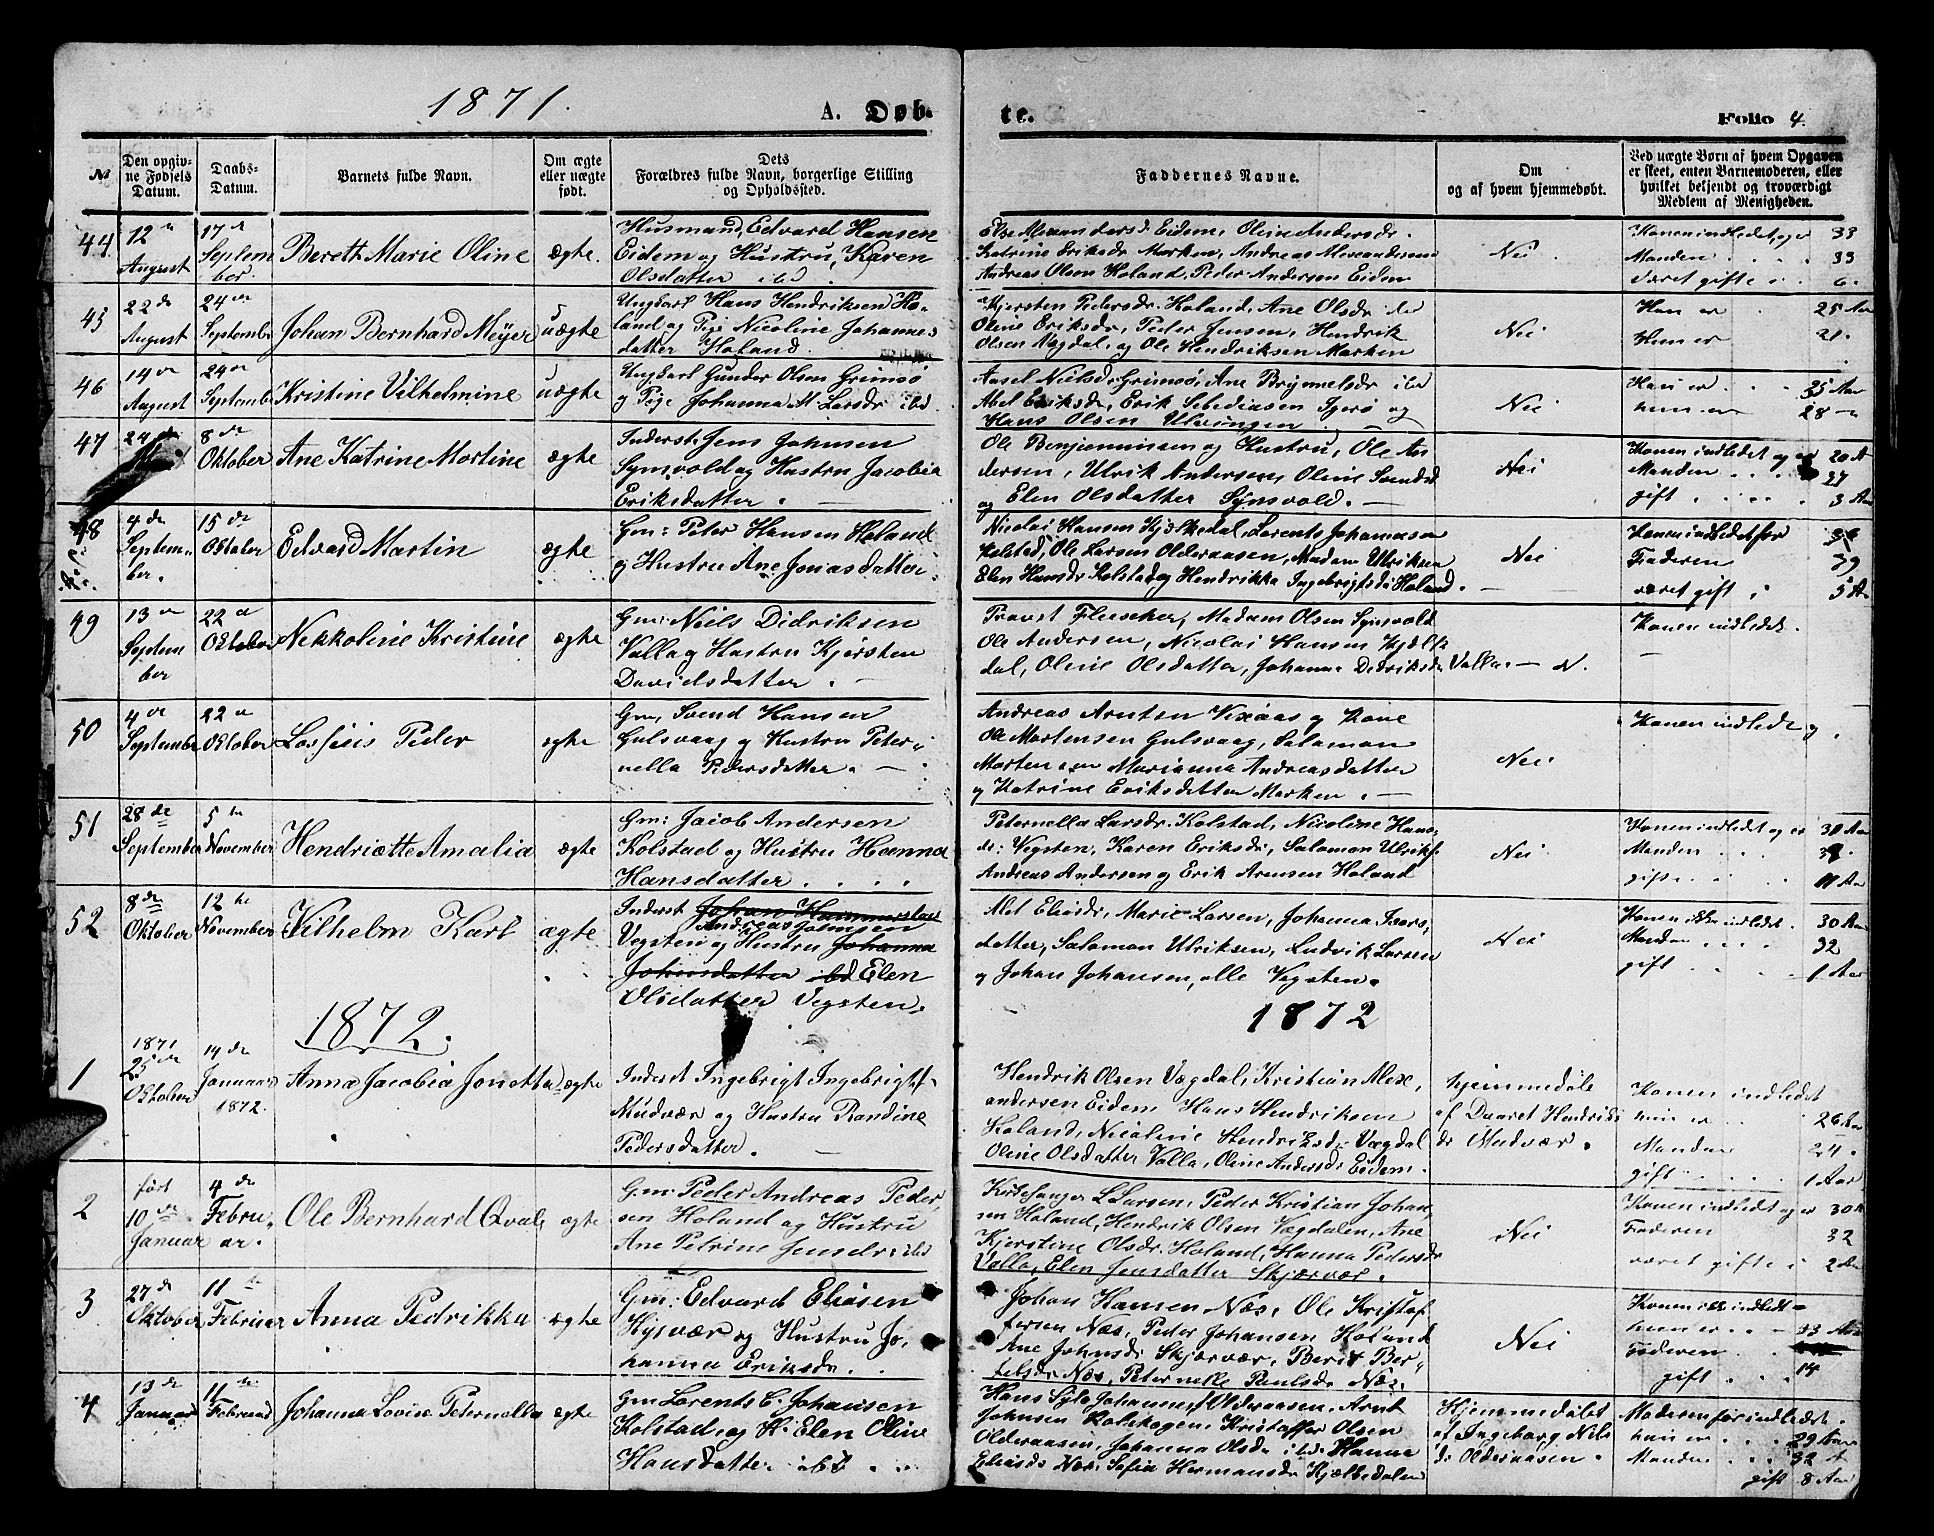 1871.
A. Døb-
te.
Folio 4.
№
Den opgiv-
ne Fødsels
Datum.
Daabs-
Datum.
Barnets fulde Navn.
Om ægte
eller uægte
født.
Dets
Forældres fulde Navn, borgerlige Stilling
og Opholdssted.
Faddernes Navne.
Om
og af hvem hjemmedøbt.
Ved uægte Børn af hvem Opgaven
er skeet, enten Barnemoderen, eller
hvilket bekjendt og troværdigt
Medlem af Menigheden.
44
12
August
17de
Septem
ber.
Berett Marie Oline
ægte.
Husmand, Edvard Hansen
Eidem og Hustru, Karen
Olsdatter ibd.
Else Alexandersd. Eidem, Oline Andersdr.
Katrine Eriksdr Marken, Andreas Alexandersen
Andreas Olsen Holand, Peder Andersen Eidem
Nei
Konen indledet, og er 33
Manden 33
været gifte i 6.
45
22de
August
24de
September
Johan Bernhard Meyer
uægte
Ungkarl Hans Hendriksen Ho-
land og Pige Nicoline Johannes
datter Holand.
Kjersten Pedersdr. Holand, Ane Olsdr ibd
Oline Eriksdr, Peder Jensen, Hendrik
Olsen Vægdal, og Ole Hendriksen Marken
Nei
Han er 25 Aar
Hun er 21.
46
14de
August
24de
September
Kristine Vilhelmine
uægte
Ungkarl Gunder Olsen Grimsø
og Pige Johanna M. Larsdr ibd.
Aasel Nielsdr Grimsø, Ane Brynnelsdr ibd
Abel Eriksdr, Erik Sebediusen Igerø og
Hans Olsen Ulvingen
Nei
Han er 35 Aar
hun er 28
47
24de
8de
Oktober
Ane Katrine Martine
ægte
Inderst. Jens Johnsen
Synsvold og Hustru Jacobia
Eriksdatter.
Ole Benjaminsen og Hustru, Ole An
dersen, Ulrik Andersen, Oline Svendsd
og Elen Olsdatter Synsvold.
Nei
Konen indledet og er 20 A
Manden 27
gift 3 Aar
48
4de
Septem-
ber.
15de
Oktober
Edvard Martin
ægte
Gm: Peter Hansen Holand
og Hustru Ane Jonasdatter
Nicolai Hansen Kjølkedal, Lorents Johannsen
Kolsted, Ole Larsen Olderaasen, Madam Ulriksen
Elen Hansdr Kolstad og Hendrikka Ingebrigtsd: Holand.
Nei
Konen indledet før
Faderen 39
været gift 5 Aar
49
13de
Septem
ber
22de
Oktober
Nekkoline Kristine
ægte
Gm: Niels Didriksen
Valla og Hustru Kjersten
Davidsdatter.
Provst Fleischer, Madam Olsen Synsvold
Ole Andersen, Nicolai Hansen Kjølk
dal, Oline Olsdatter, Johanna Didriksdr Valla. — N.
Konen indledet.
50
4de
September
22de
Oktober
Peder
ægte
Gm. Svend Hansen
Gulsvaag og Hustru Peter-
nella Pedersdatter.
Andreas Arntsen Vixaas og Kone
Ole Mortensen Gulsvaag, Salamon
Morten Marianna Andreasdatter
og Katrine Eriksdatter Marken.
Nei
Konen indlede og
51
28de
September
5te
November
Hendriette Amalia
ægte
Gm: Jacob Andersen
Kolstad og Hustru Hanna
Hansdatter.
Peternella Larsdr. Kolstad, Nicoline Hans
d: Vegsten, Karen Eriksdr, Salamon Ulriks.
Andreas Andersen og Erik Arensen Holand
Nei
Konen indledet og er 38 Aar
Manden
gifte 11 Aar
52
8de
Oktober
12te
November
Vilhelm Karl
ægte
Inderst Johan Hammerslov
Andreas Johnsen
Vegsten og Hustru Johanna
Johnsdatter ibd Elen
Olsdatter Vegsten.
Alet Eliasdr, Marie Larsen, Johanna Isars
datter, Salamon Ulriksen, Ludvik Larsen
og Johan Johansen, alle Vegsten.
Nei
Konen ikke indledet. 30 Aar
Manden 32
gift 1 Aar
1872.
1872
1
1871
25de
Oktober
14de
Januaar
1872.
Anna Jacobia Jonetta
ægte
Inderst Ingebrigt Ingebrigts
Mudvær og Hustru Randine
Pedersdatter.
Hendrik Olsen Vægdal, Kristian Alex,
andersen Eidem Hans Hendriksen
Holand, Nicoline Hendriksd: Vægdal
Oline Olsdatter Valla, Oline Andersd: Eidem.
hjemmedøbt
af Daaret Hendriks
dr Mudvær.
Konen indledet
hun er 26 Aar
Manden 24.
gift 1 Aar
2
født
10de
Januar
4de
Febru-
ar.
Ole Bernhard Qvale
ægte
Gm: Peder Andreas Peder,
sen Holand og Hustru
Ane Petrine Jensdr ibd
Kirkesanger L Larsen, Peder Kristian Johan
sen Holand, Hendrik Olsen Vægdalen, Ane
Kjerstine Olsdr. Holand, Hanna Pedersdr
Valla, Elen Jensdatter Skjærvær.
Nei
Konen indledet og er 30
Faderen 32
været gifte i 2 Aar
3
27de
Oktober
11te
Februar
Anna Pedrikka
ægte
Gm: Edvard Eliasen
Hysvær og Hustru Jo,
hanna Eriksdr.
Johan Hansen Næs, Ole Kristof
fersen Næs, Peder Johansen Holand
Ane Johnsdr Skjærvær, Berit Ber-
telsdr Næs, Peternelle Paulsdr Næs.
Nei
Konen indledt
hun er 33 Aar
Faderen
gift 14
4
13de
Januar
11te
Februar
Johanna Lovise Peternella
ægte
Gm Lorents C. Johansen
Kolstad og H: Elen Oline
Hansdatter ibd
Hans Sylv. Johannes Olderaasen. Arnt
Johnsen Kristoffer Olsen
Olderaasen, Johanna Olsdr ibd. Hanna
Eliasd: Næs, Sofia Hermansdr Kjølkedalen
Hjemmedøbet
af Ingeborg Niels
dr Olderaasen.
Moderen før indledet.
hun er 29 Aar
Manden 32 A
gift 8 Aar